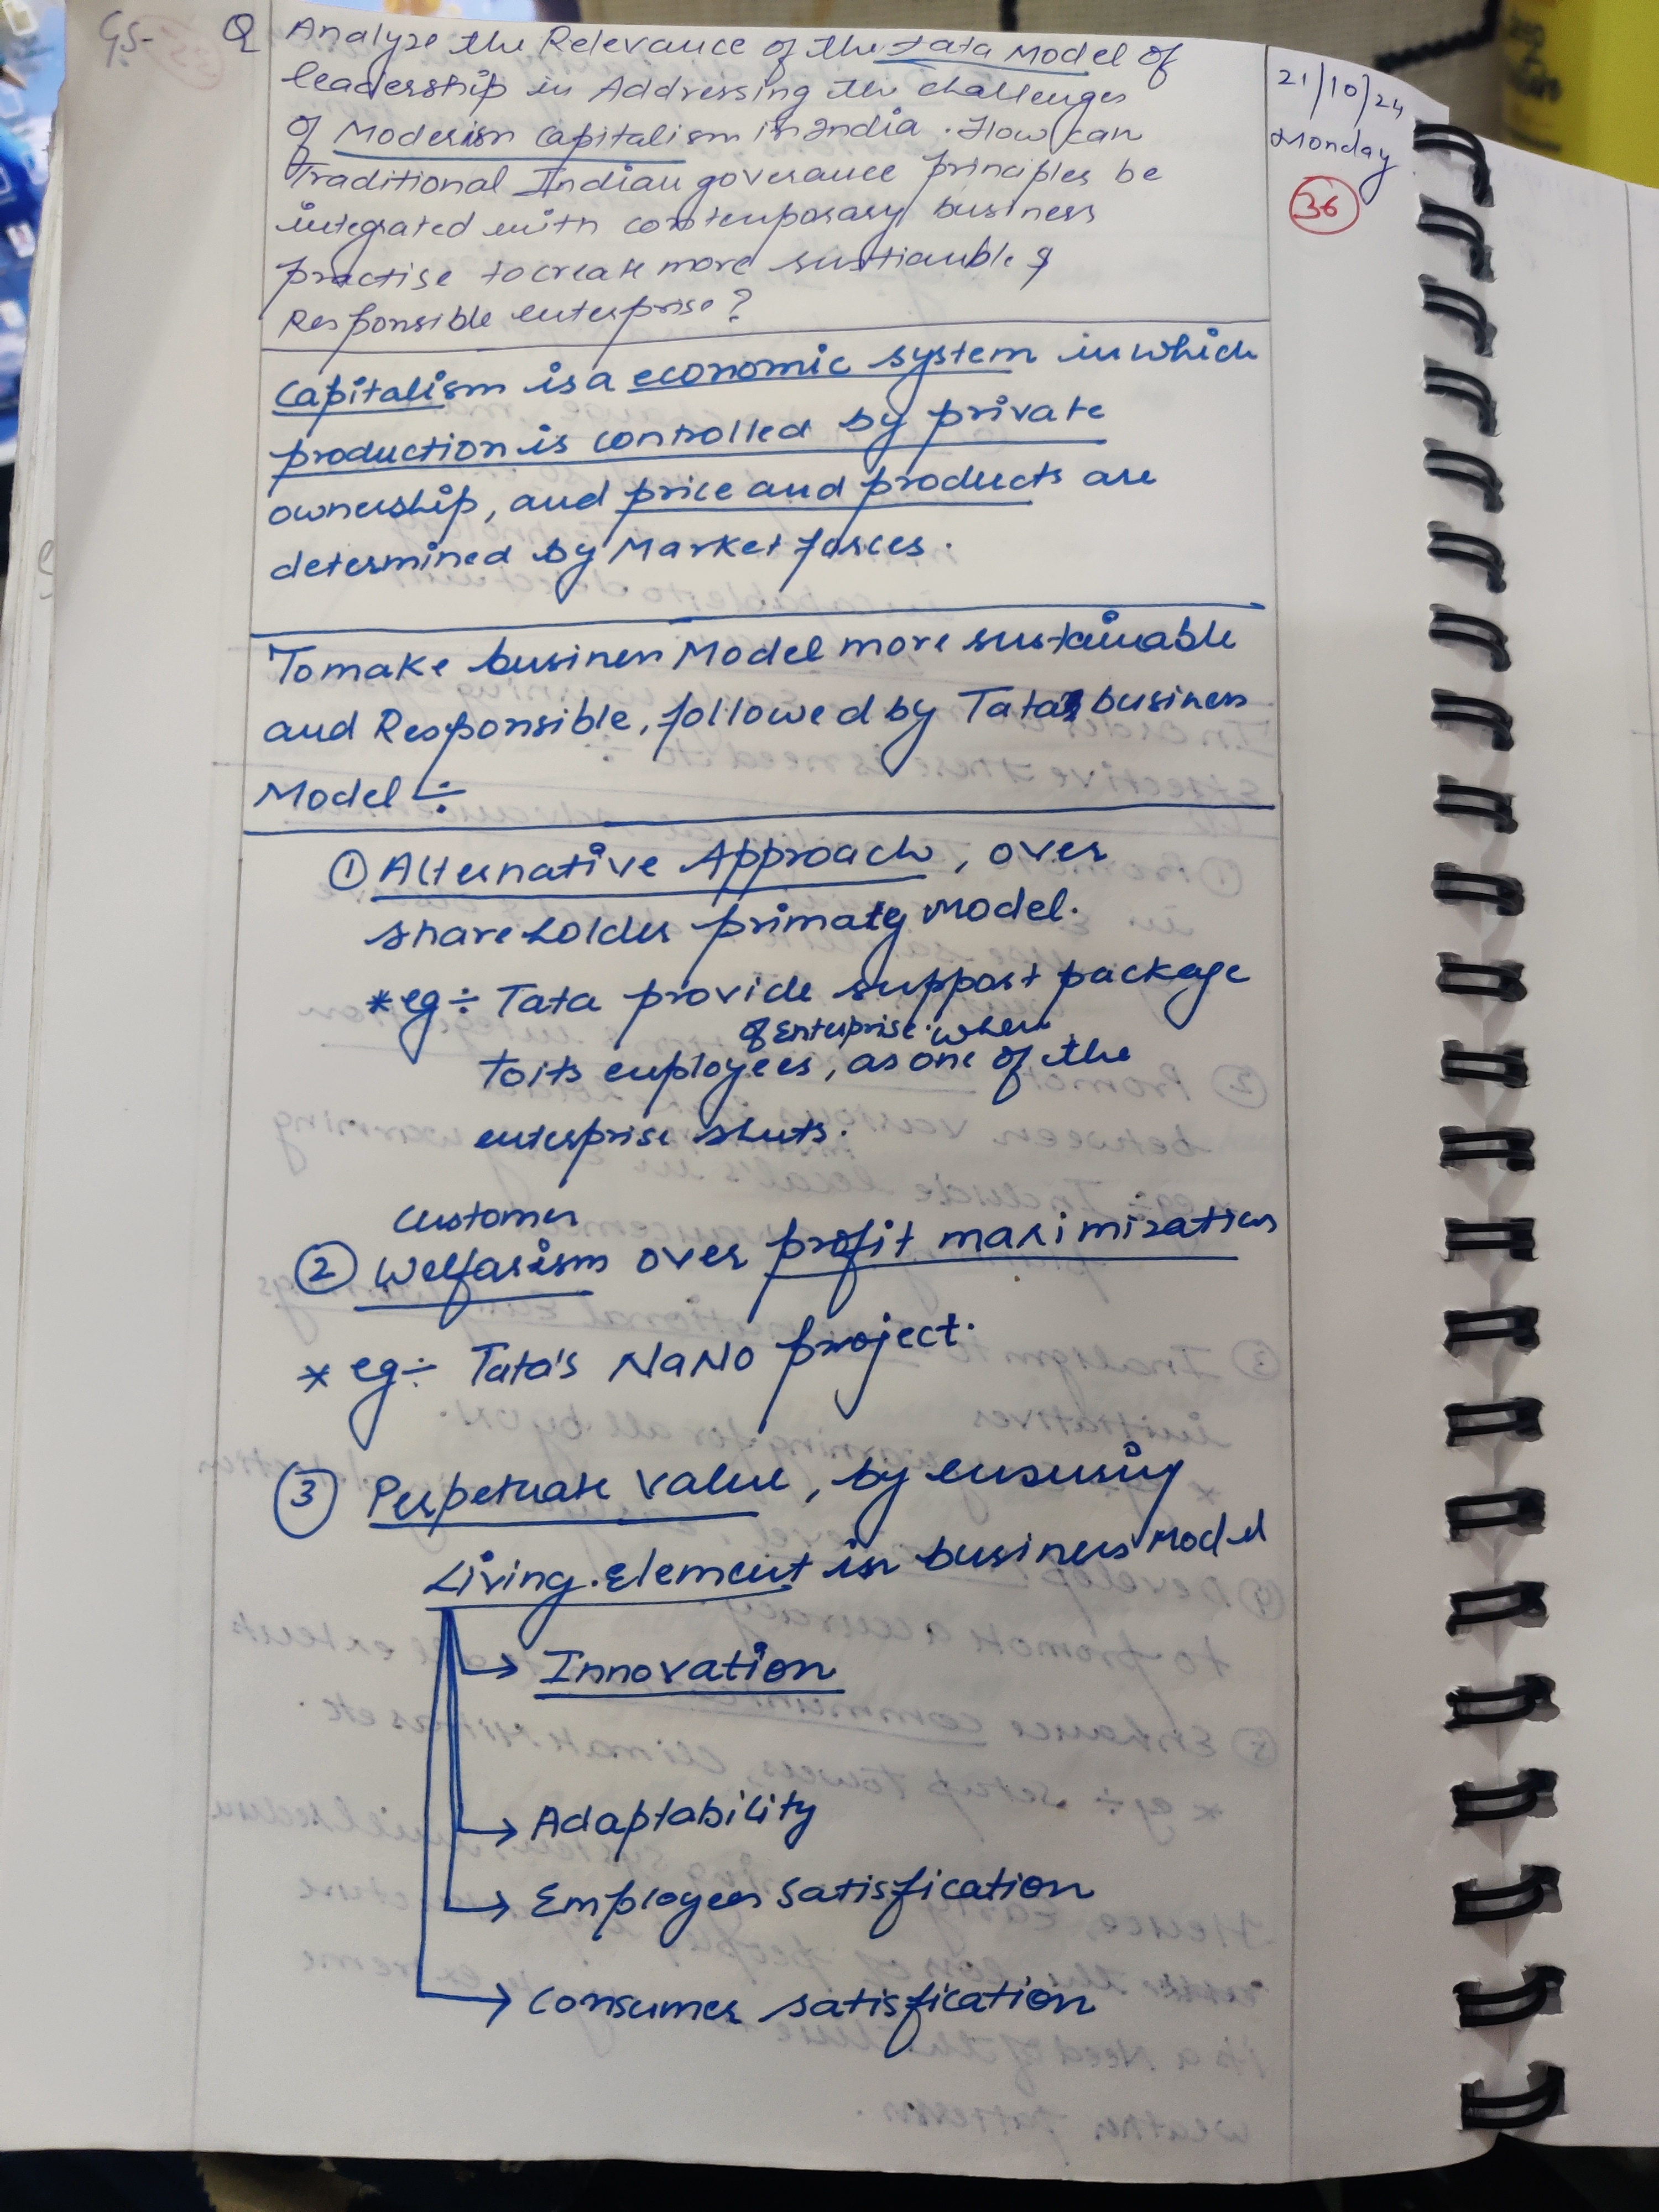 GS-
Q Analyze the Relevance of the Tata Model of
leadership in Addressing the challenges
of Modern capitalism in India. How can
Traditional Indian goverance principles be
integrated with contemporary business
practise to create more sustianble &
Responsible enterprise?
21/10/24
Monday
36
Capitalism is a economic system in which
production is controlled by private
ownership, and price and products are
determined by Market forces.
To make business Model more sustainable
and Responsible, followed by Tata's business
Model :-
① Alternative Approach, over
shareholder primaty Model.
* eg ÷ Tata provide support package
of Enterprise. when
to its employees, as one of the
enterprise shuts.
customer
② Welfarism over profit maximization
* eg ÷ Tata's NaNO project.
③ Perpetuate value, by ensuring
Living. Element in business Model
→ Innovation
→ Adaptability
→ Employees satisfication
→ Consumer satisfication